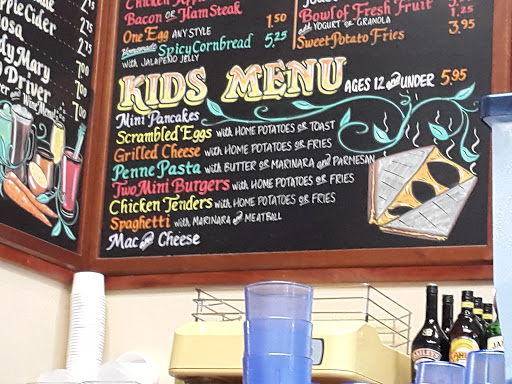 Apple Cider 2.75
osa 7.00
dy Mary 7.00
Driver 7.00
Wine Menu
Chicken
Bacon OR Ham Steak
One Egg ANY STYLE 1.50
Homemade Spicy Cornbread 5.25
WITH JALAPEÑO JELLY
Bowl of Fresh Fruit
ADD YOGURT OR GRANOLA 1.25
Sweet Potato Fries 3.95
KIDS MENU AGES 12 and UNDER 5.95
Mini Pancakes
Scrambled Eggs with HOME POTATOES OR TOAST
Grilled Cheese with HOME POTATOES OR FRIES
Penne Pasta with BUTTER OR MARINARA and PARMESAN
Two Mini Burgers with HOME POTATOES OR FRIES
Chicken Tenders with HOME POTATOES OR FRIES
Spaghetti with MARINARA and MEATBALL
Mac and Cheese
BAILEYS